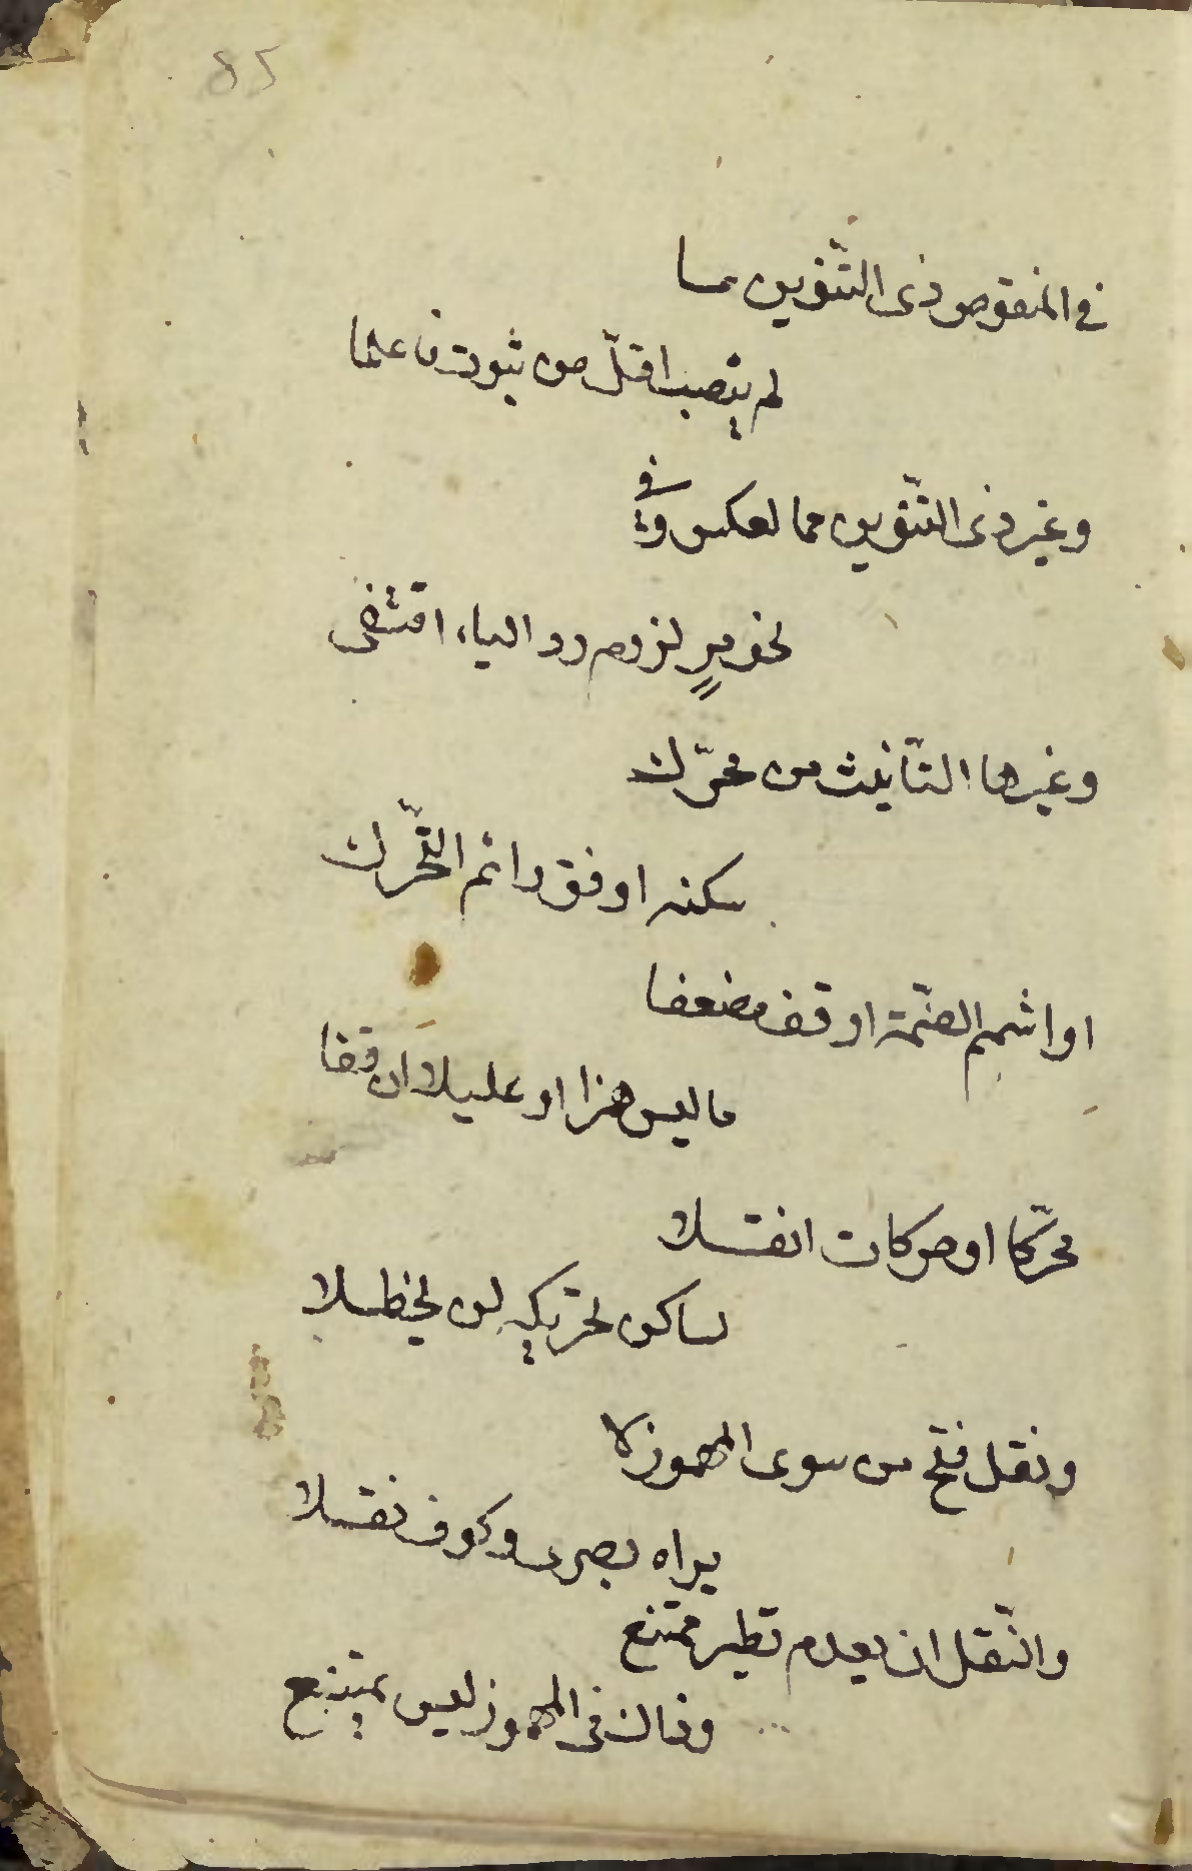 85
في المنقوص ذى التّنوين ما
لم ينصب اقلّ من ثبوت فاعلما
وغير ذى التّنوين مما لعكس وفي
نحو مرٍ لزوم رد الياء اقتفى
وغيرها التّأنيث من محرّك
سكنه او فق دائم التّحرك
او اشمم الضّمة او قف مضعفا
ما ليس همزا او عليلا ان قفا
محرّكا او حركات انقلا
لساكن تحريكه لن يخظلا
ونقل فتح من سوى المهموز لا
يراه بصرى وكوف نقلا
والنّقل ان يعدم نظير ممتنع
وذاك فى المهموز ليس يمتنع